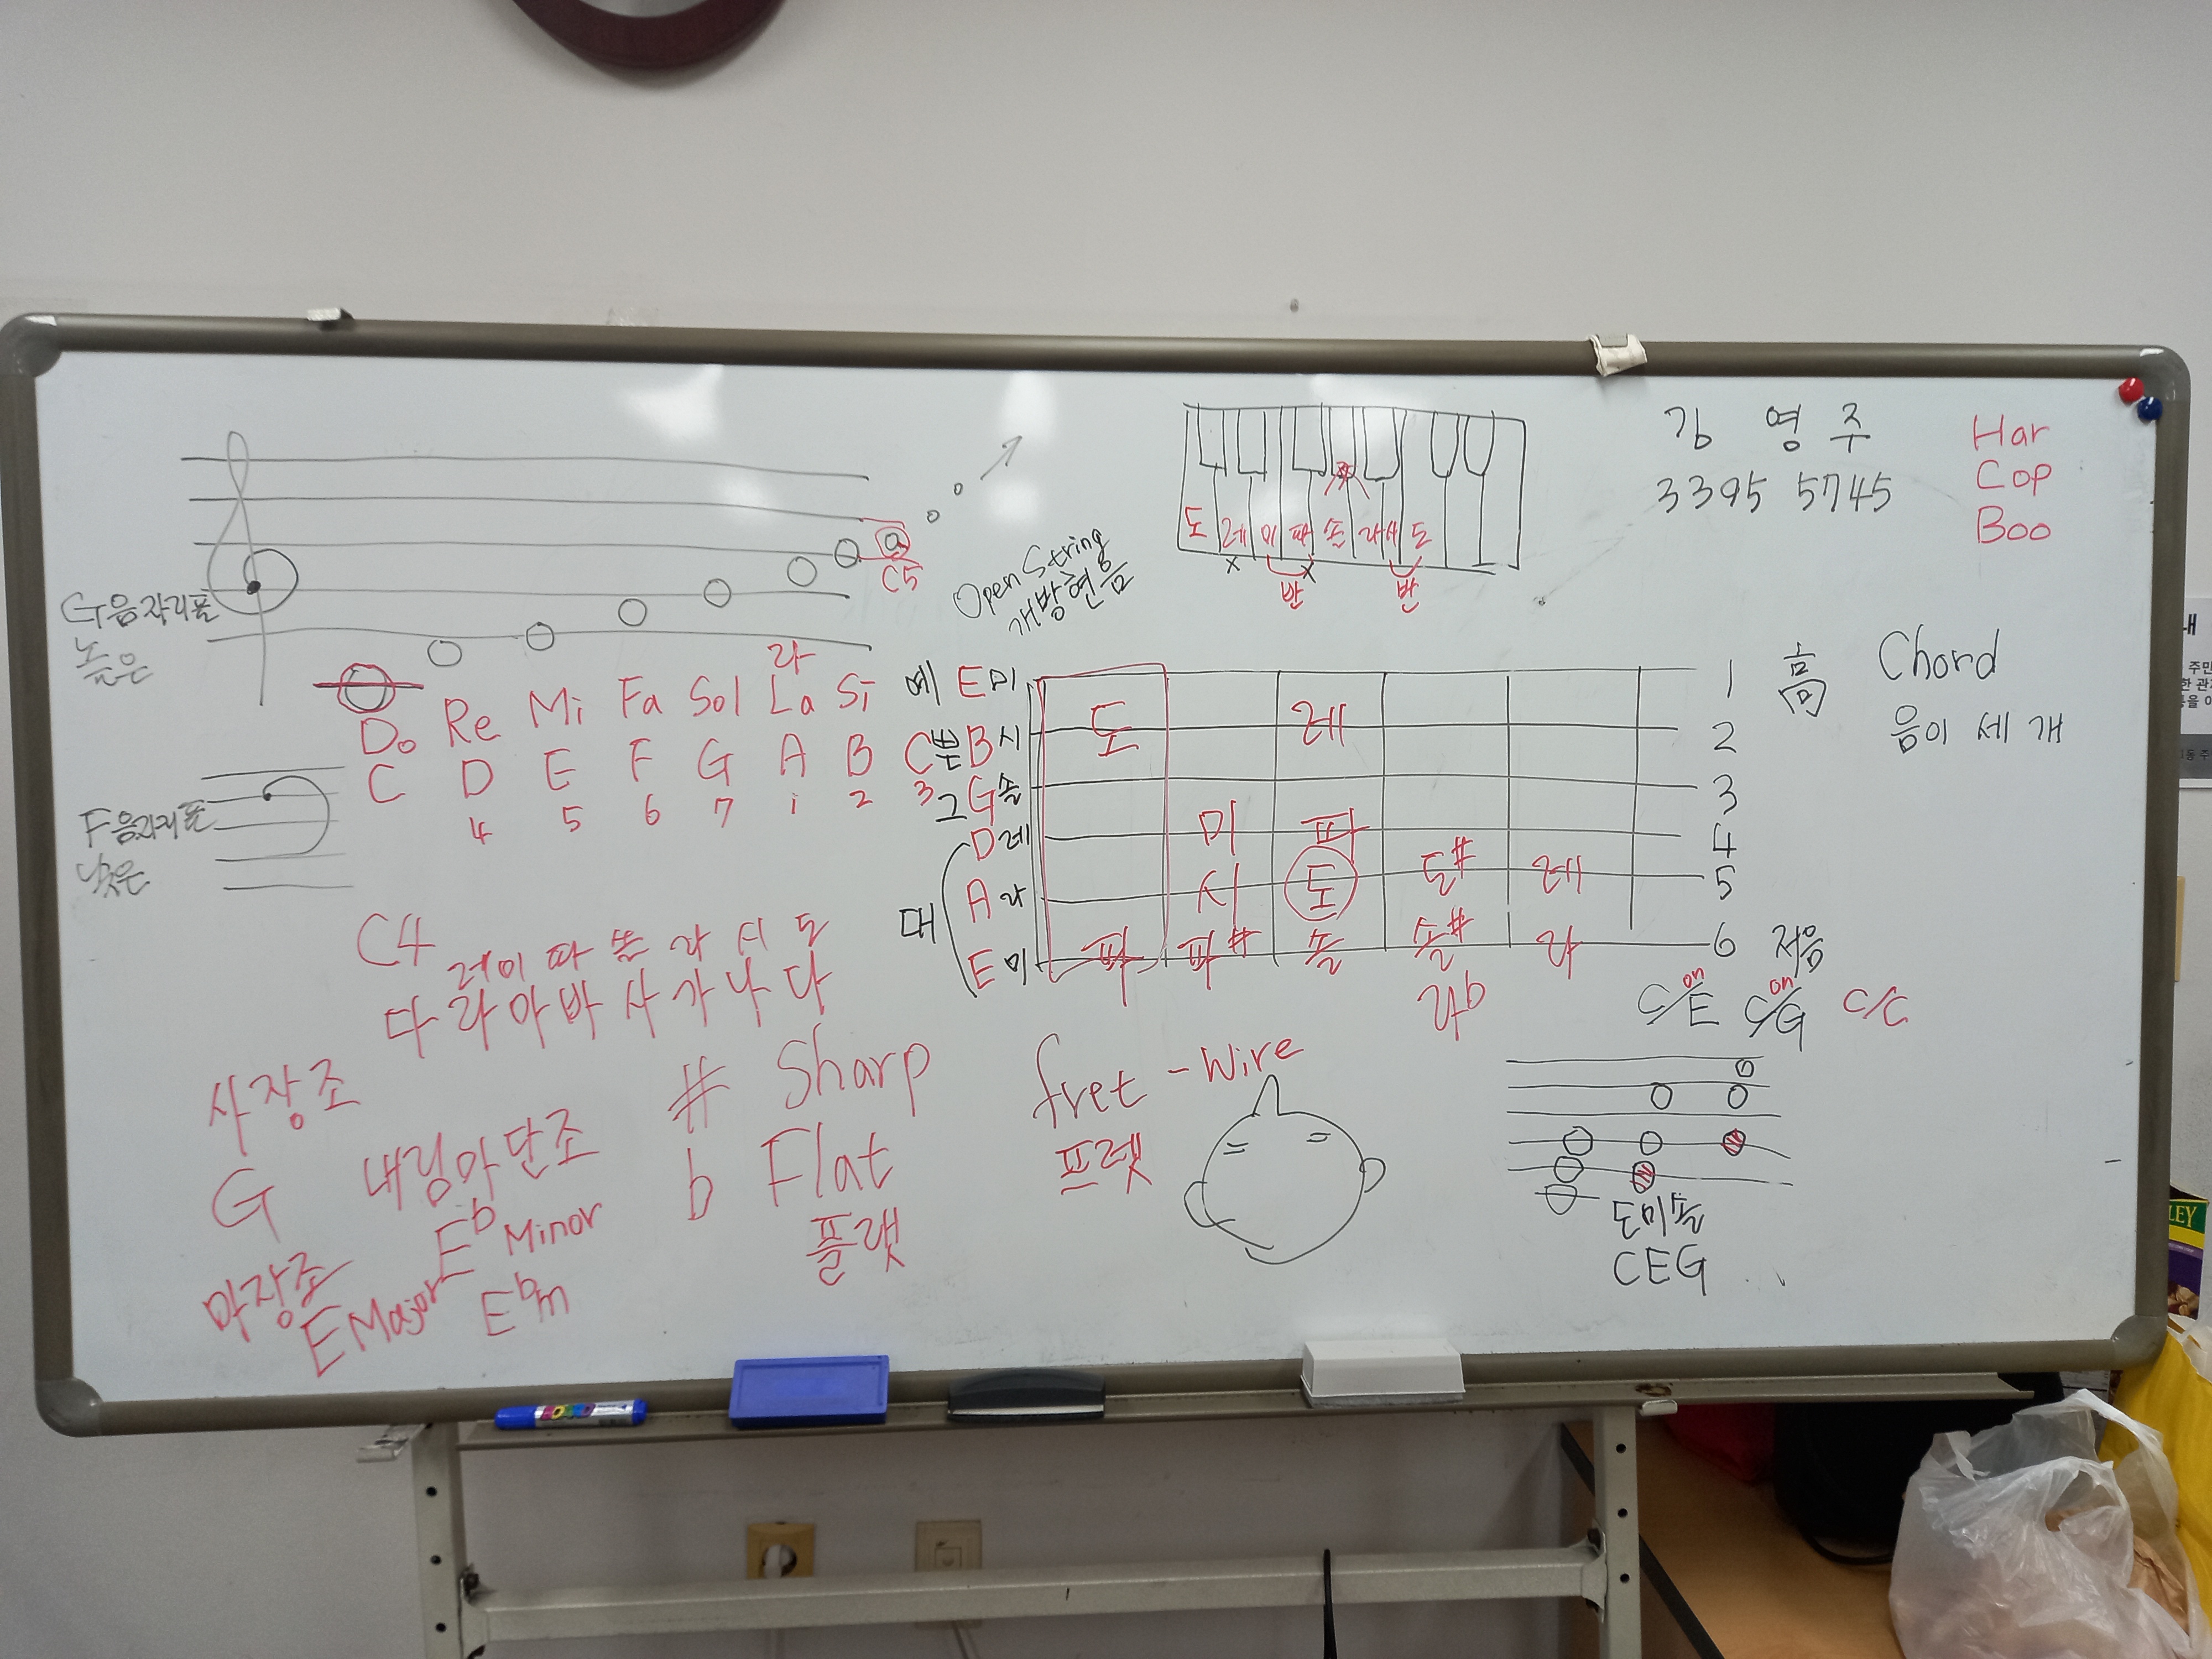 G음자리표
높은
F음자리표
낮은
C5
라
Do Re Mi Fa Sol La Si
C D E F G A B
4 5 6 7 1 2 3
C4
레 미 파 솔 라 시 도
다 라 마 바 사 가 나 다
사장조
G
내림마단조
E♭ Minor
E♭m
마장조
E Major
# Sharp
b Flat
플랫
Open String
개방현음
도 레 미 파 솔 라 시 도
x x
반 반
예 E 미
C 뿐 B 시
그 G 솔
D 레
대 A 라
E 미
도 레
미 파
시 도 도# 레
파 파# 솔 솔# 라
라b
1 高
2
3
4
5
6 저음
fret - Wire
프렛
김 영 주
3395 5745
Har
Cop
Boo
Chord
음이 세 개
on on
C/E C/G C/C
도미솔
CEG
내
LEY